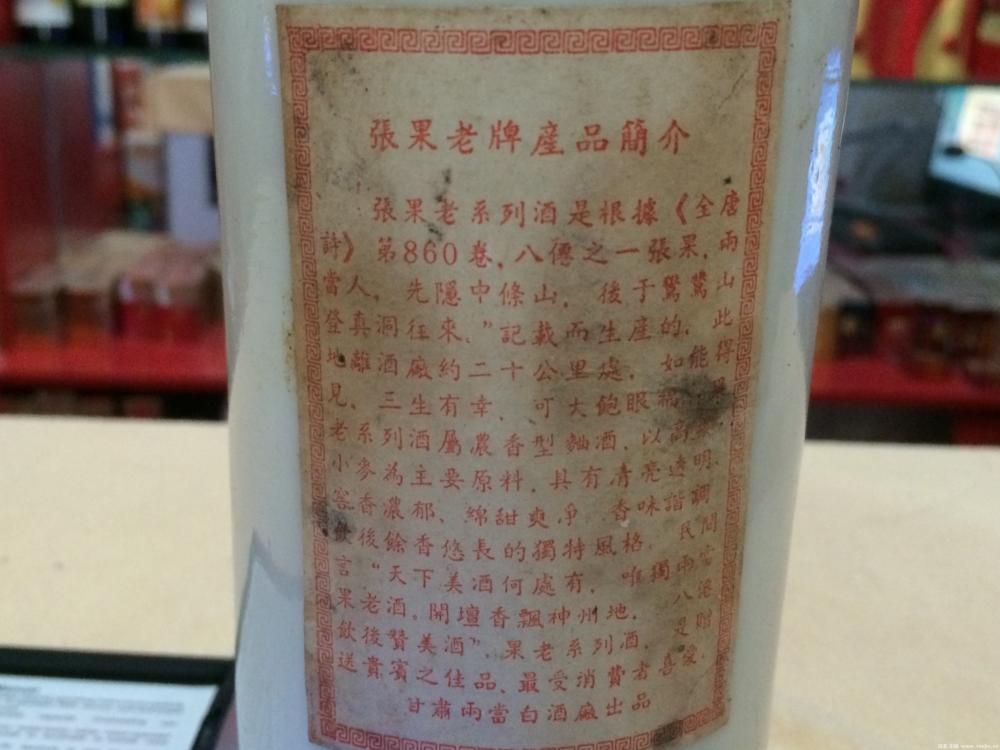 張果老牌産品簡介
張果老系列酒是根據《全唐
詩》第860卷，八僊之一張果，兩
當人，先隱中條山，後于鷲鷲山
登真洞往來，”記載而生産的，此
地離酒廠約二十公里處，如能得
見，三生有幸，可大飽眼福
老系列酒屬濃香型麯酒，以高粱
小麥為主要原料，具有清亮透明、
窖香濃郁、綿甜爽净、香味諧調
飲後餘香悠長的獨特風格，民間
言“天下美酒何處有，唯獨兩當
果老酒，開壇香飄神州地，八僊
飲後贊美酒”，果老系列酒，是贈
送貴賓之佳品、最受消費者喜愛。
甘肅兩當白酒廠出品